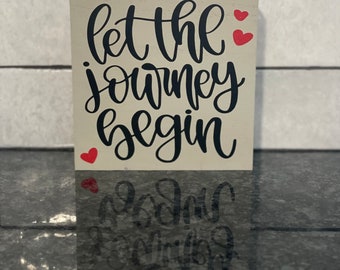 let the
journey
begin